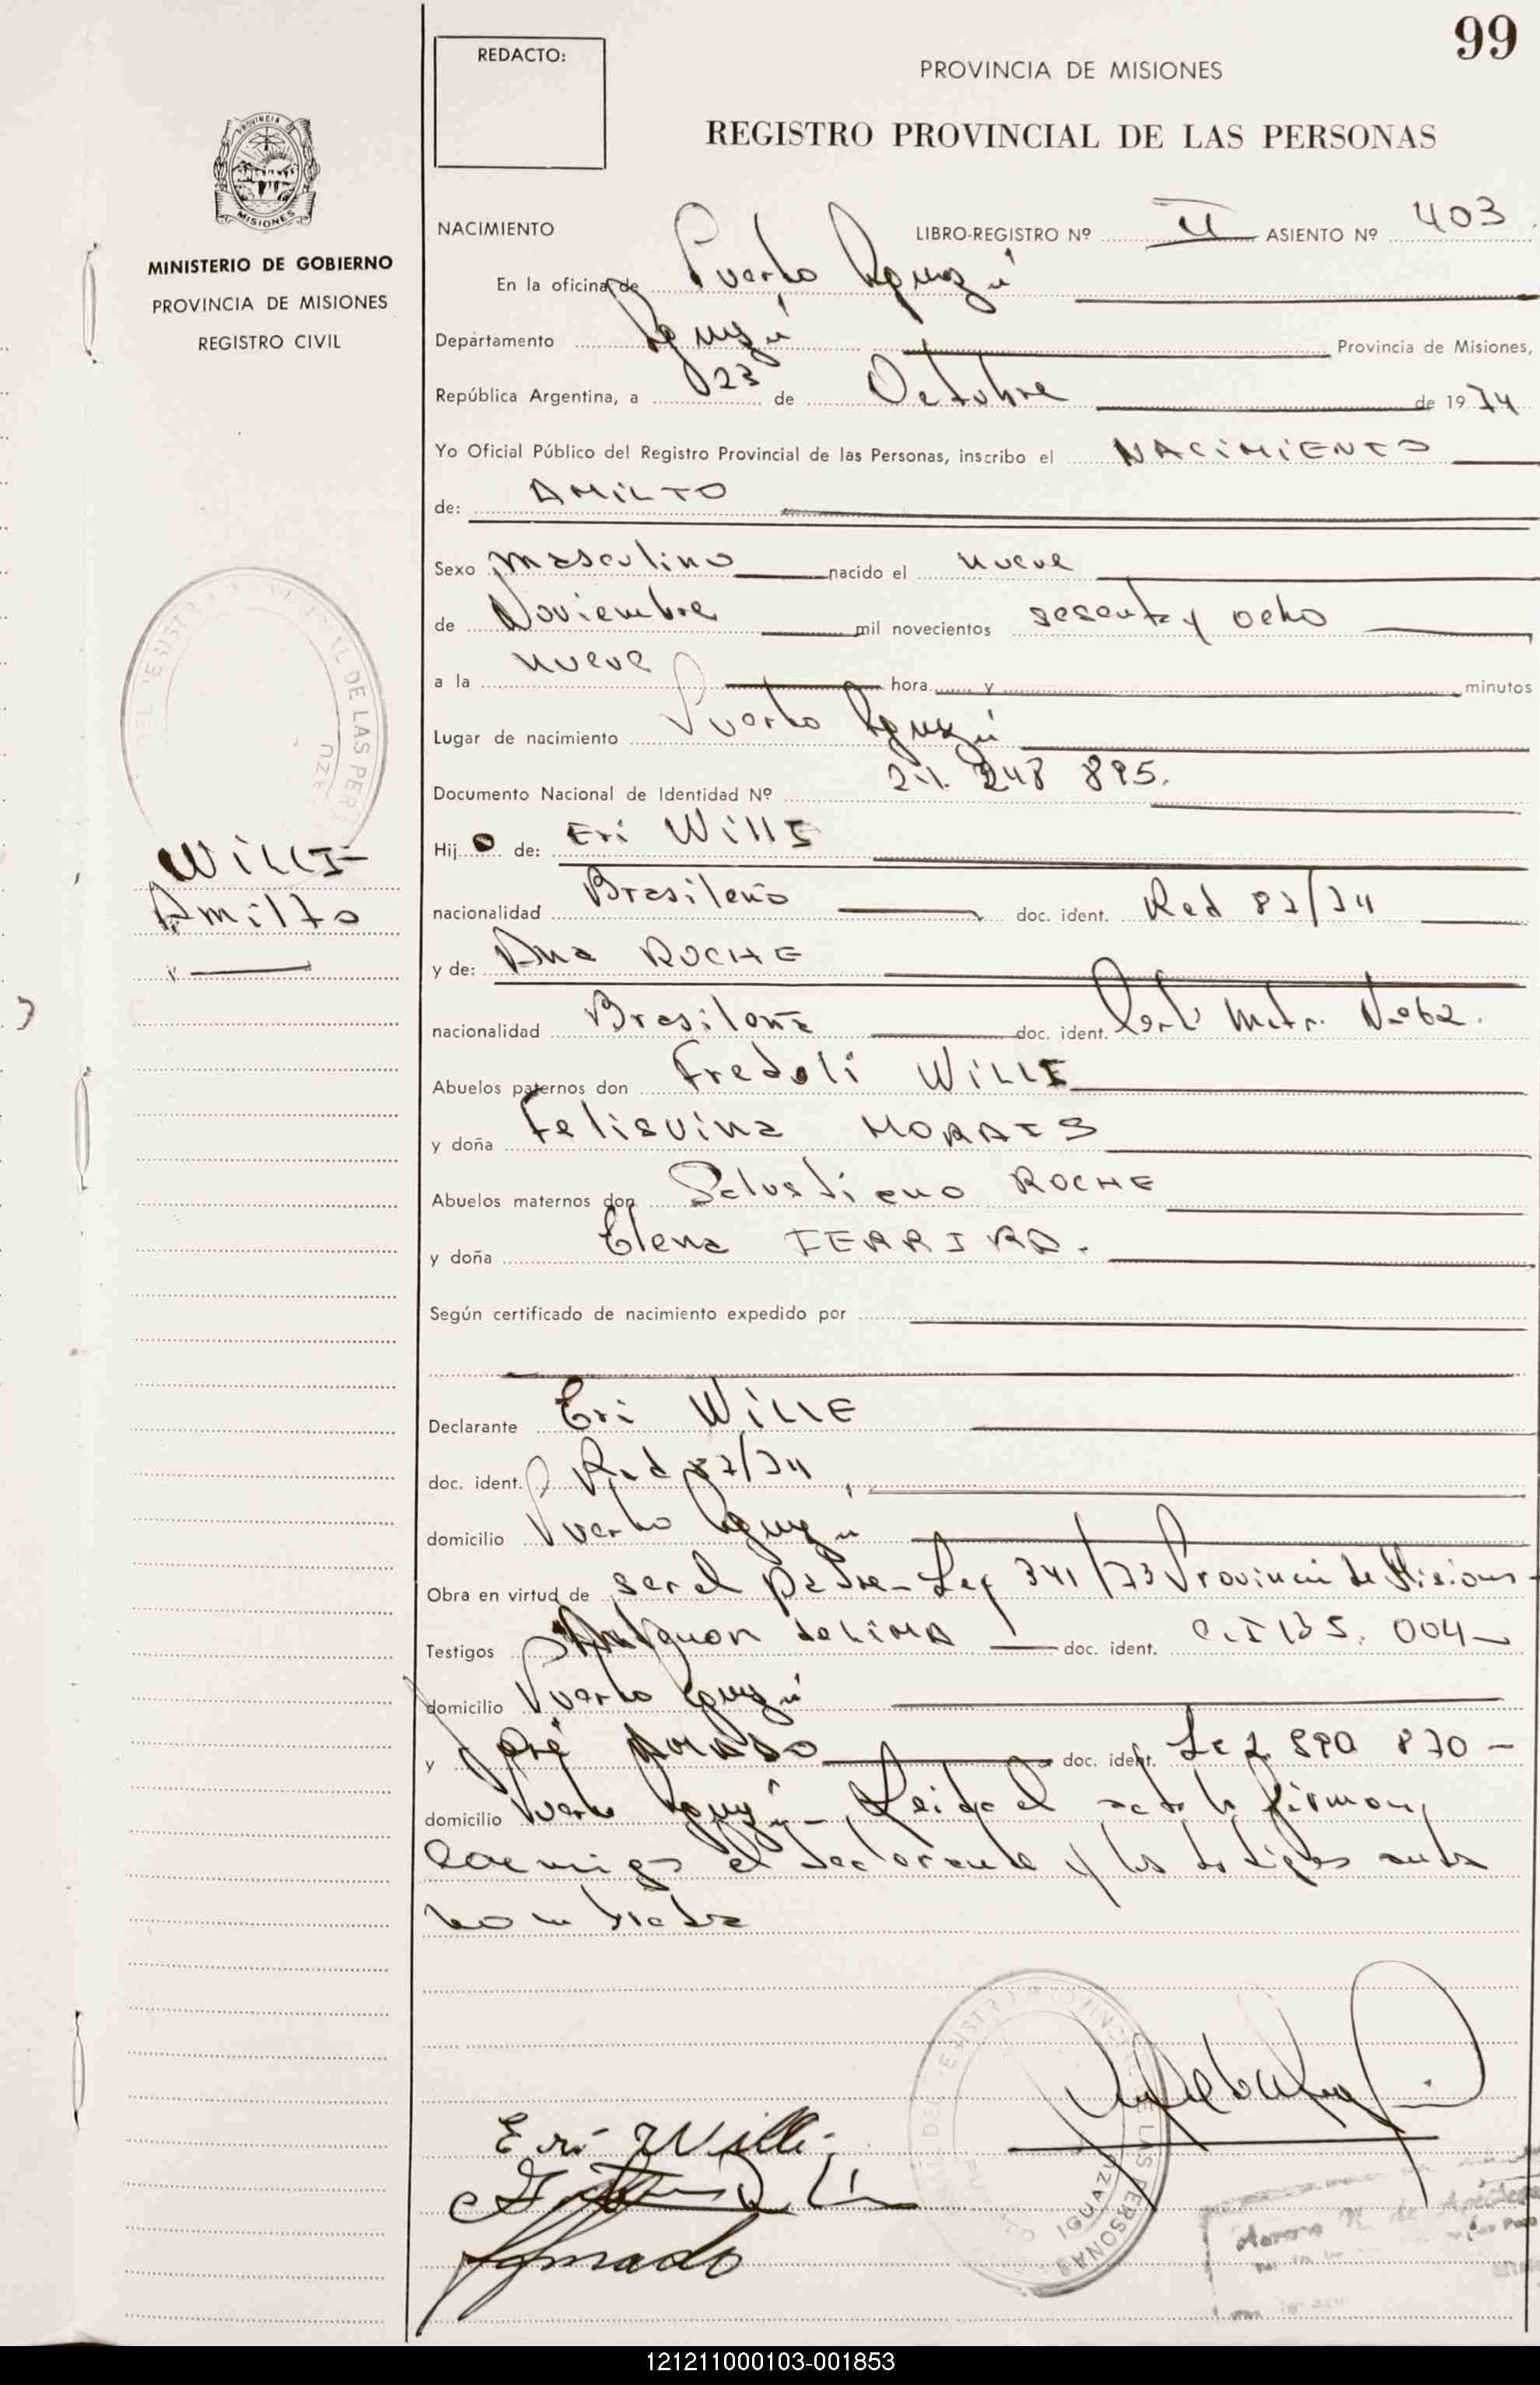 99
REDACTO:
PROVINCIA DE MISIONES
REGISTRO PROVINCIAL DE LAS PERSONAS
MINISTERIO DE GOBIERNO
PROVINCIA DE MISIONES
REGISTRO CIVIL
NACIMIENTO
LIBRO-REGISTRO Nº II ASIENTO Nº 403
En la oficina de Puerto Iguazú
Departamento Iguazú Provincia de Misiones,
República Argentina, a 23 de Octubre de 1974
Yo Oficial Público del Registro Provincial de las Personas, inscribo el NACIMIENTO
de: AMILTO
Sexo Masculino nacido el nueve
de Noviembre mil novecientos sesenta y ocho
a la nueve hora y minutos
Lugar de nacimiento Puerto Iguazú
Documento Nacional de Identidad Nº 21. 248 895.
Hijo de: Eri WillE
WILLE
Amilto
nacionalidad Brasileño doc. ident. Rad 87/74
y de: Ana ROCHE
nacionalidad Brasileña doc. ident.
Abuelos paternos don Fredoli WILLE
y doña Felisvina MORAIS
Abuelos maternos don Salustiano ROCHE
y doña Elena FERRIRA.
Según certificado de nacimiento expedido por
Declarante Eri WILLE
doc. ident. Rad 87/74
domicilio Puerto Iguazú
Obra en virtud de ser el padre - Ley 341/73 Provincia de Misiones
Testigos de LIMA doc. ident. C.I 135. 004
domicilio Puerto Iguazú
y José AMADO doc. ident. 890 870
domicilio Puerto Iguazú - Leida el acta la firman
conmigo el declarante y los testigos ante
nombrados
Eri Wille
Amado
REGISTRO PROVINCIAL DE LAS PERSONAS
IGUAZU
121211000103-001853